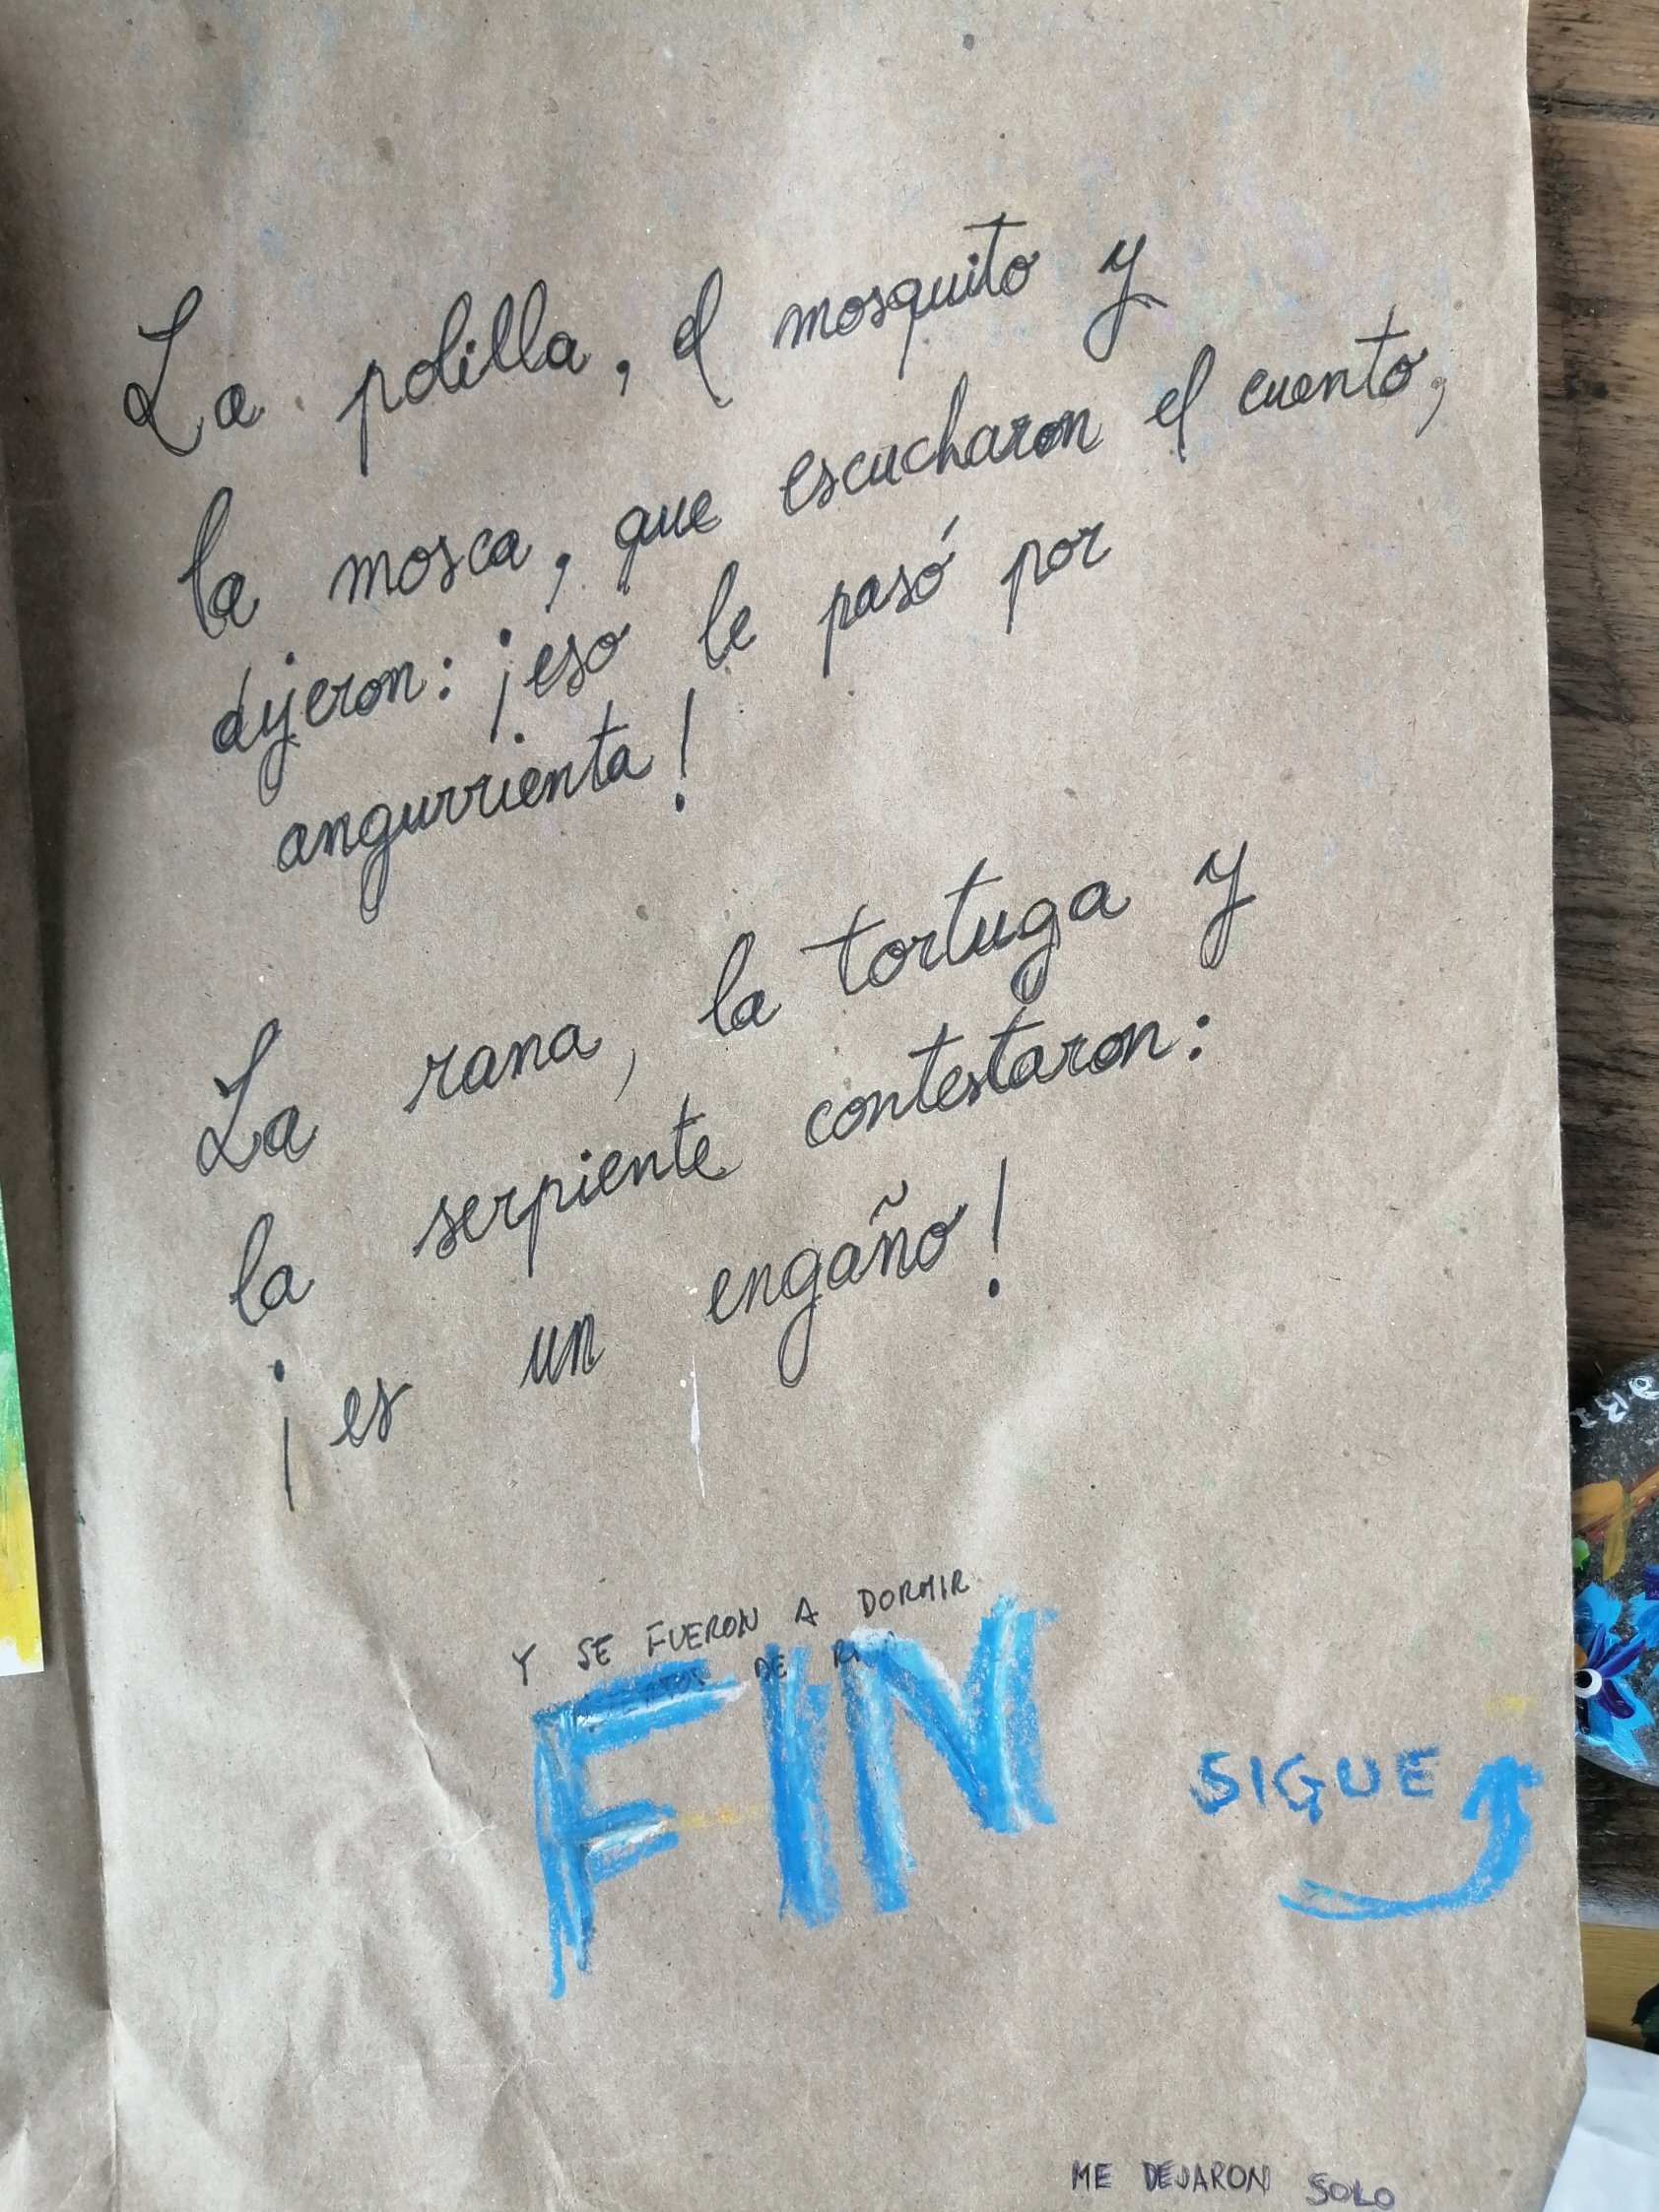 La polilla, el mosquito y
la mosca, que escucharon el cuento,
dijeron: ¡eso le pasó por
angurrienta!
La rana, la tortuga y
la serpiente contestaron:
¡es un engaño!
Y SE FUERON A DORMIR
DE
FIN
SIGUE
ME DEJARON SOLO